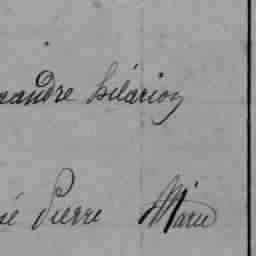 xandre hilarion
sé Pierre Marie